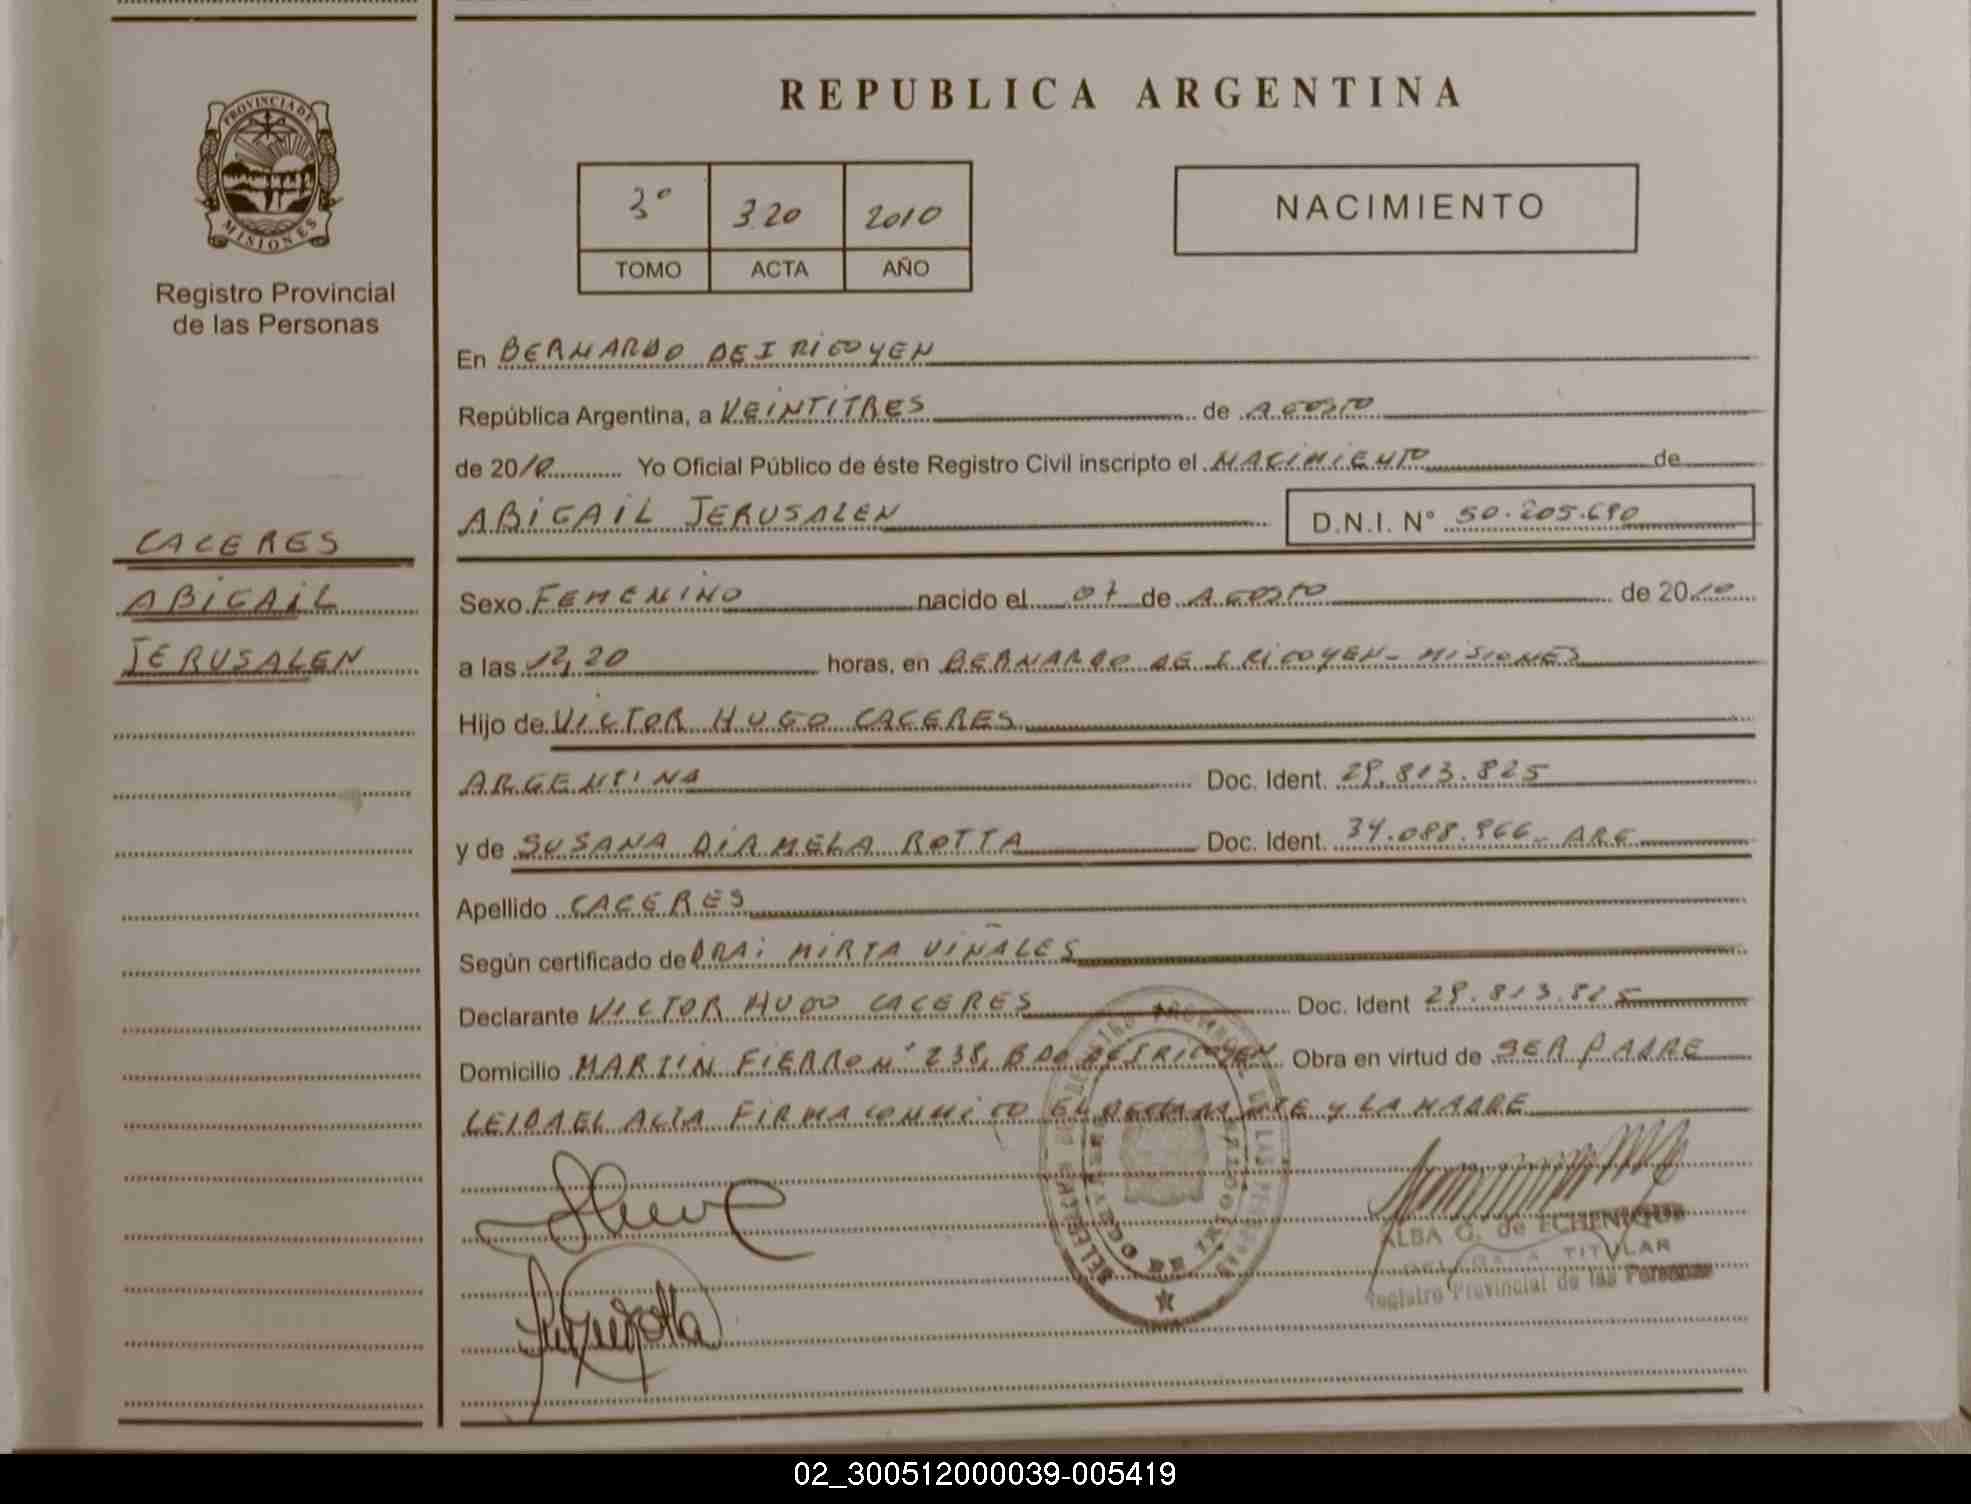 REPUBLICA ARGENTINA
PROVINCIA DE
MISIONES
Registro Provincial
de las Personas
3º 320 2010
TOMO ACTA AÑO
NACIMIENTO
En BERNARDO DE IRIGOYEN
República Argentina, a VEINTITRES de AGOSTO
de 2010 Yo Oficial Público de éste Registro Civil inscripto el NACIMIENTO de
ABIGAIL JERUSALEN D.N.I. N° 50.205.690
CACERES
ABIGAIL
JERUSALEN
Sexo FEMENINO nacido el 07 de AGOSTO de 2010
a las 12,20 horas, en BERNARDO DE IRIGOYEN - MISIONES
Hijo de VICTOR HUGO CACERES
ARGENTINA Doc. Ident. 29.813.825
y de SUSANA DIAMELA ROTTA Doc. Ident. 34.088.966- ARG
Apellido CACERES
Según certificado de DRA: MIRTA VIÑALES
Declarante VICTOR HUGO CACERES Doc. Ident 29.813.825
Domicilio MARTIN FIERRO N° 238, BDO DE IRIGOYEN Obra en virtud de SER PADRE
LEIDA EL ACTA FIRMA CONMIGO EL DECLARANTE y LA MADRE
ALBA G. de ECHENIQUE
DELEGADA TITULAR
Registro Provincial de las Personas
02_300512000039-005419